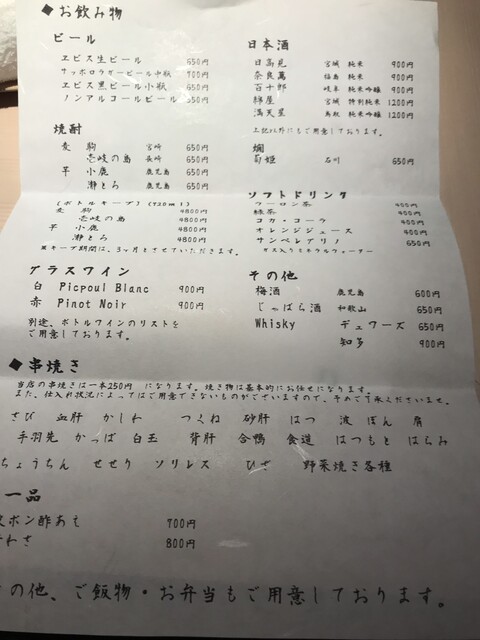 ◆お飲み物
ビール
ヱビス生ビール 650円
サッポロラガービール中瓶 700円
ヱビス黒ビール小瓶 650円
ノンアルコールビール 550円
焼酎
麦 駒 宮崎 650円
壱岐の島 長崎 650円
芋 小鹿 鹿児島 650円
瀞とろ 鹿児島 650円
(ボトルキープ)(720ml)
麦 駒 4800円
壱岐の島 4800円
芋 小鹿 4800円
瀞とろ 4800円
※キープ期間は、3ヶ月とさせていただきます。
グラスワイン
白 Picpoul Blanc 900円
赤 Pinot Noir 900円
別途、ボトルワインのリストを
ご用意しております。
日本酒
日高見 宮城 純米 900円
奈良萬 福島 純米 900円
百十郎 岐阜 純米吟醸 900円
綿屋 宮城 特別純米 1200円
満天星 鳥取 純米吟醸 1200円
上記以外にもご用意しております。
燗
菊姫 石川 650円
ソフトドリンク
ウーロン茶 400円
緑茶 400円
コカ・コーラ 400円
オレンジジュース 400円
サンペレグリノ 650円
ガス入りミネラルウォーター
その他
梅酒 鹿児島 600円
じゃばら酒 和歌山 650円
Whisky デュワーズ 650円
知多 900円
◆串焼き
当店の串焼きは一本250円 になります。焼き物は基本的にお任せになります。
また、仕入れ状況によってはご用意できないものがございますので、予めご了承くださいませ。
さび 血肝 かしわ つくね 砂肝 はつ 波 ぼん 肩
手羽先 かっぱ 白玉 背肝 合鴨 食道 はつもと はらみ
ちょうちん せせり ソリレス ひざ 野菜焼き各種
一品
ポン酢あえ 700円
わさ 800円
の他、ご飯物・お弁当もご用意しております。